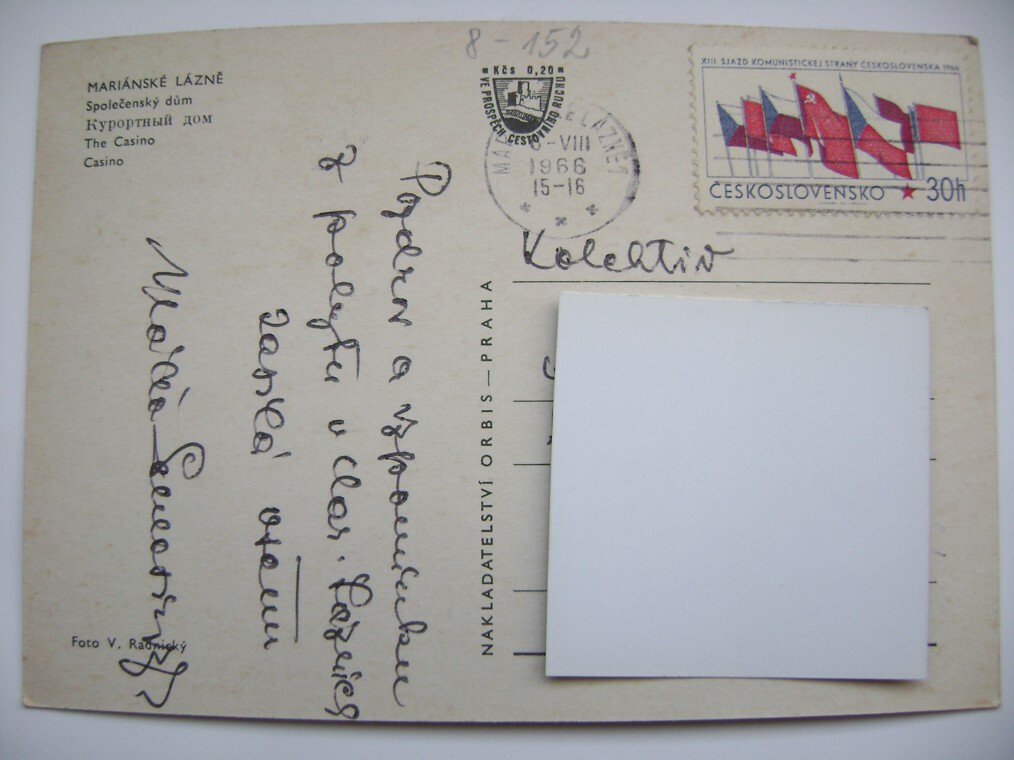 8-152
MARIÁNSKÉ LÁZNĚ
Společenský dům
Курортный дом
The Casino
Casino
Kčs 0,20
VE PROSPĚCH CESTOVNÍHO RUCHU
LÁZNĚ 1
-VIII
1966
15-16
XIII. SJAZD KOMUNISTICKEJ STRANY ČESKOSLOVENSKA 1966
ČESKOSLOVENSKO ★ 30h
Kolektiv
Pozdrav a vzpomínku
z pobytu v Mar. Lázních
zasílá všem
NAKLADATELSTVÍ ORBIS — PRAHA
Foto V. Radnický